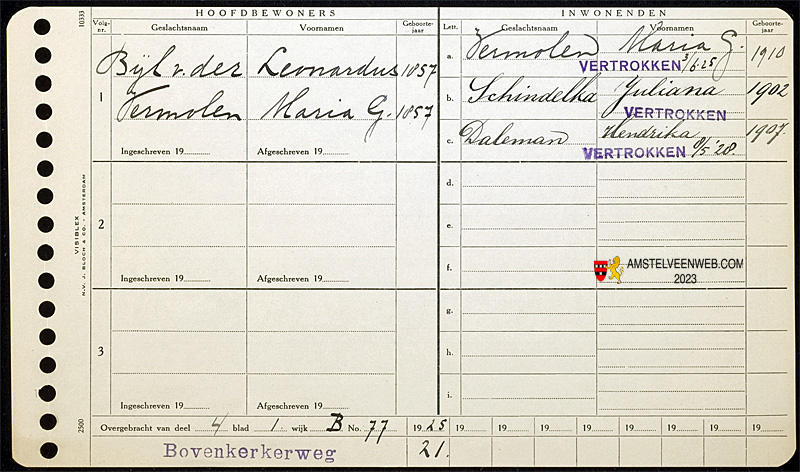 HOOFDBEWONERS
Volg-nr. Geslachtsnaam Voornamen Geboorte-jaar
1 Bijl v. der Leonardus 1857
Vermolen Maria G. 1857
Ingeschreven 19 Afgeschreven 19
2
Ingeschreven 19 Afgeschreven 19
3
Ingeschreven 19 Afgeschreven 19
INWONENDEN
Lett. Geslachtsnaam Voornamen Geboorte-jaar
a. Vermolen Maria G. 1910
VERTROKKEN 3/6.25
b. Schindelka Juliana 1902
VERTROKKEN
c. Daleman Hendrika 1907.
VERTROKKEN 8/5 '28.
d.
e.
f.
g.
h.
i.
Overgebracht van deel 4 blad 1. wijk B No. 77 1925 19 19 19 19 19 19 19
Bovenkerkerweg 21.
10333
VISIBLEX
N.V. J. BLOCH & CO. - AMSTERDAM
2500
AMSTELVEENWEB.COM
2023